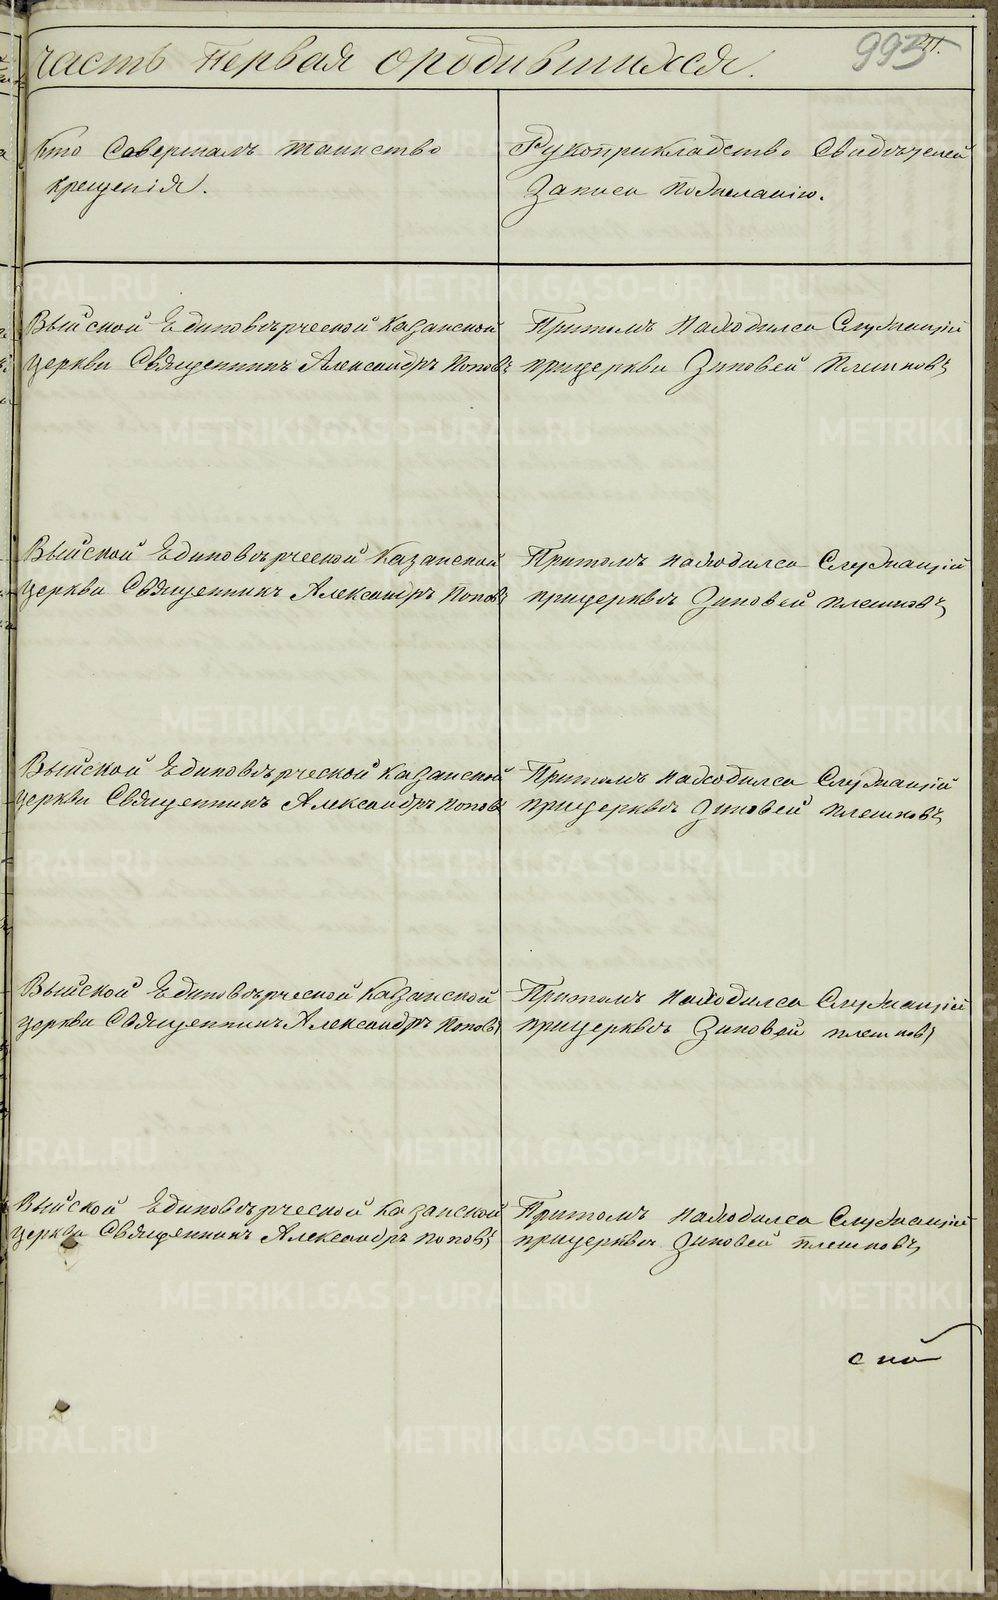 Часть первая о родившихся.
993
Кто Совершалъ таинство
крещенія.
Рукоприкладство Свидѣтелей
Записи по желанію.
Выйской Единовѣрческой Казанской
церкви Священникъ Александръ Поповъ
При томъ находился Служащій
при церкви Зиновей Плешковъ
Выйской Единовѣрческой Казанской
церкви Священникъ Александръ Поповъ
При томъ находился Служащій
при церквѣ Зиновей Плешковъ
Выйской Единовѣрческой Казанской
церкви Священникъ Александръ Поповъ
При томъ находился Служащій
при церквѣ Зиновей Плешковъ
Выйской Единовѣрческой Казанской
церкви Священникъ Александръ Поповъ
При томъ находился Служащій
при церквѣ Зиновей Плешковъ
Выйской Единовѣрческой Казанской
церкви Священникъ Александръ Поповъ
При томъ находился Служащій
при церкви Зиновей Плешковъ
METRIKI.GASO-URAL.RU